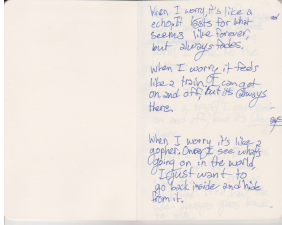 When I worry, it's like a
echo, it lasts for what
seems like forever,
but always fades.
When I worry it feels
like a train, I can get
on and off, but its always
there.
When I worry it's like a
gopher. Once I see what's
going on in the world
I just want to
go back inside and hide
from it.